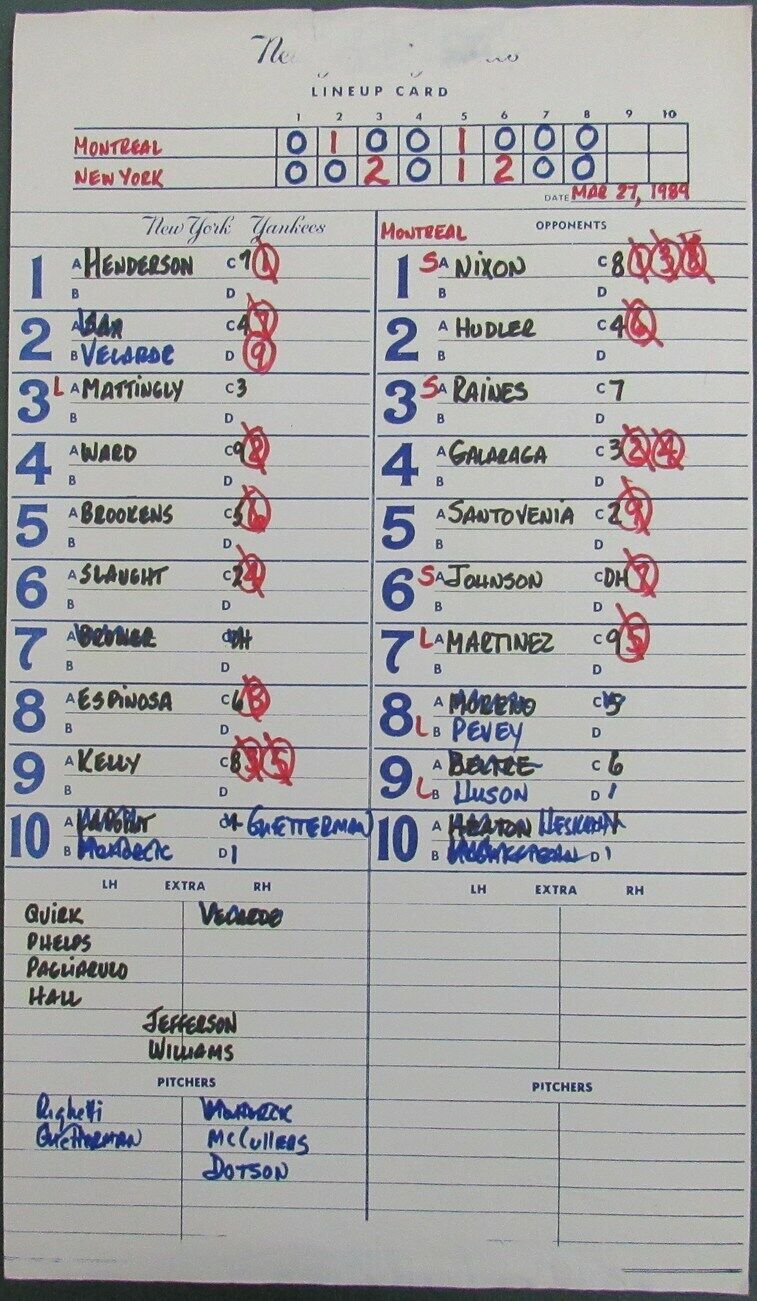 LINEUP CARD
1 2 3 4 5 6 7 8 9 10
MONTREAL 0 1 0 0 1 0 0 0
NEW YORK 0 0 2 0 1 2 0 0
DATE MAR 27, 1989
New York Yankees
1 A HENDERSON C 7 1
B D
2 A C 4 7
B VELARDE D 9
3 L A MATTINGLY C 3
B D
4 A WARD C 9 2
B D
5 A BROOKENS C 5 6
B D
6 A SLAUGHT C 2 4
B D
7 A C DH
B D
8 A ESPINOSA C 6 8
B D
9 A KELLY C 8 3 5
B D
10 A GUETTERMAN
B D 1
LH EXTRA RH
QUIRK VELARDE
PHELPS
PAGLIARULO
HALL
JEFFERSON
WILLIAMS
PITCHERS
Righetti
GUETTERMAN McCULLERS
DOTSON
MONTREAL OPPONENTS
1 S A NIXON C 8 1 3 8
B D
2 A HUDLER C 4 6
B D
3 S A RAINES C 7
B D
4 A GALARAGA C 3 2 4
B D
5 A SANTOVENIA C 2 9
B D
6 S A JOHNSON C DH 7
B D
7 L A MARTINEZ C 9 5
B D
8 A MORENO C 5
L B PEVEY D
9 A BELTRE C 6
L B HUSON D 1
10 A HEATON HESKETH
B D 1
LH EXTRA RH
PITCHERS